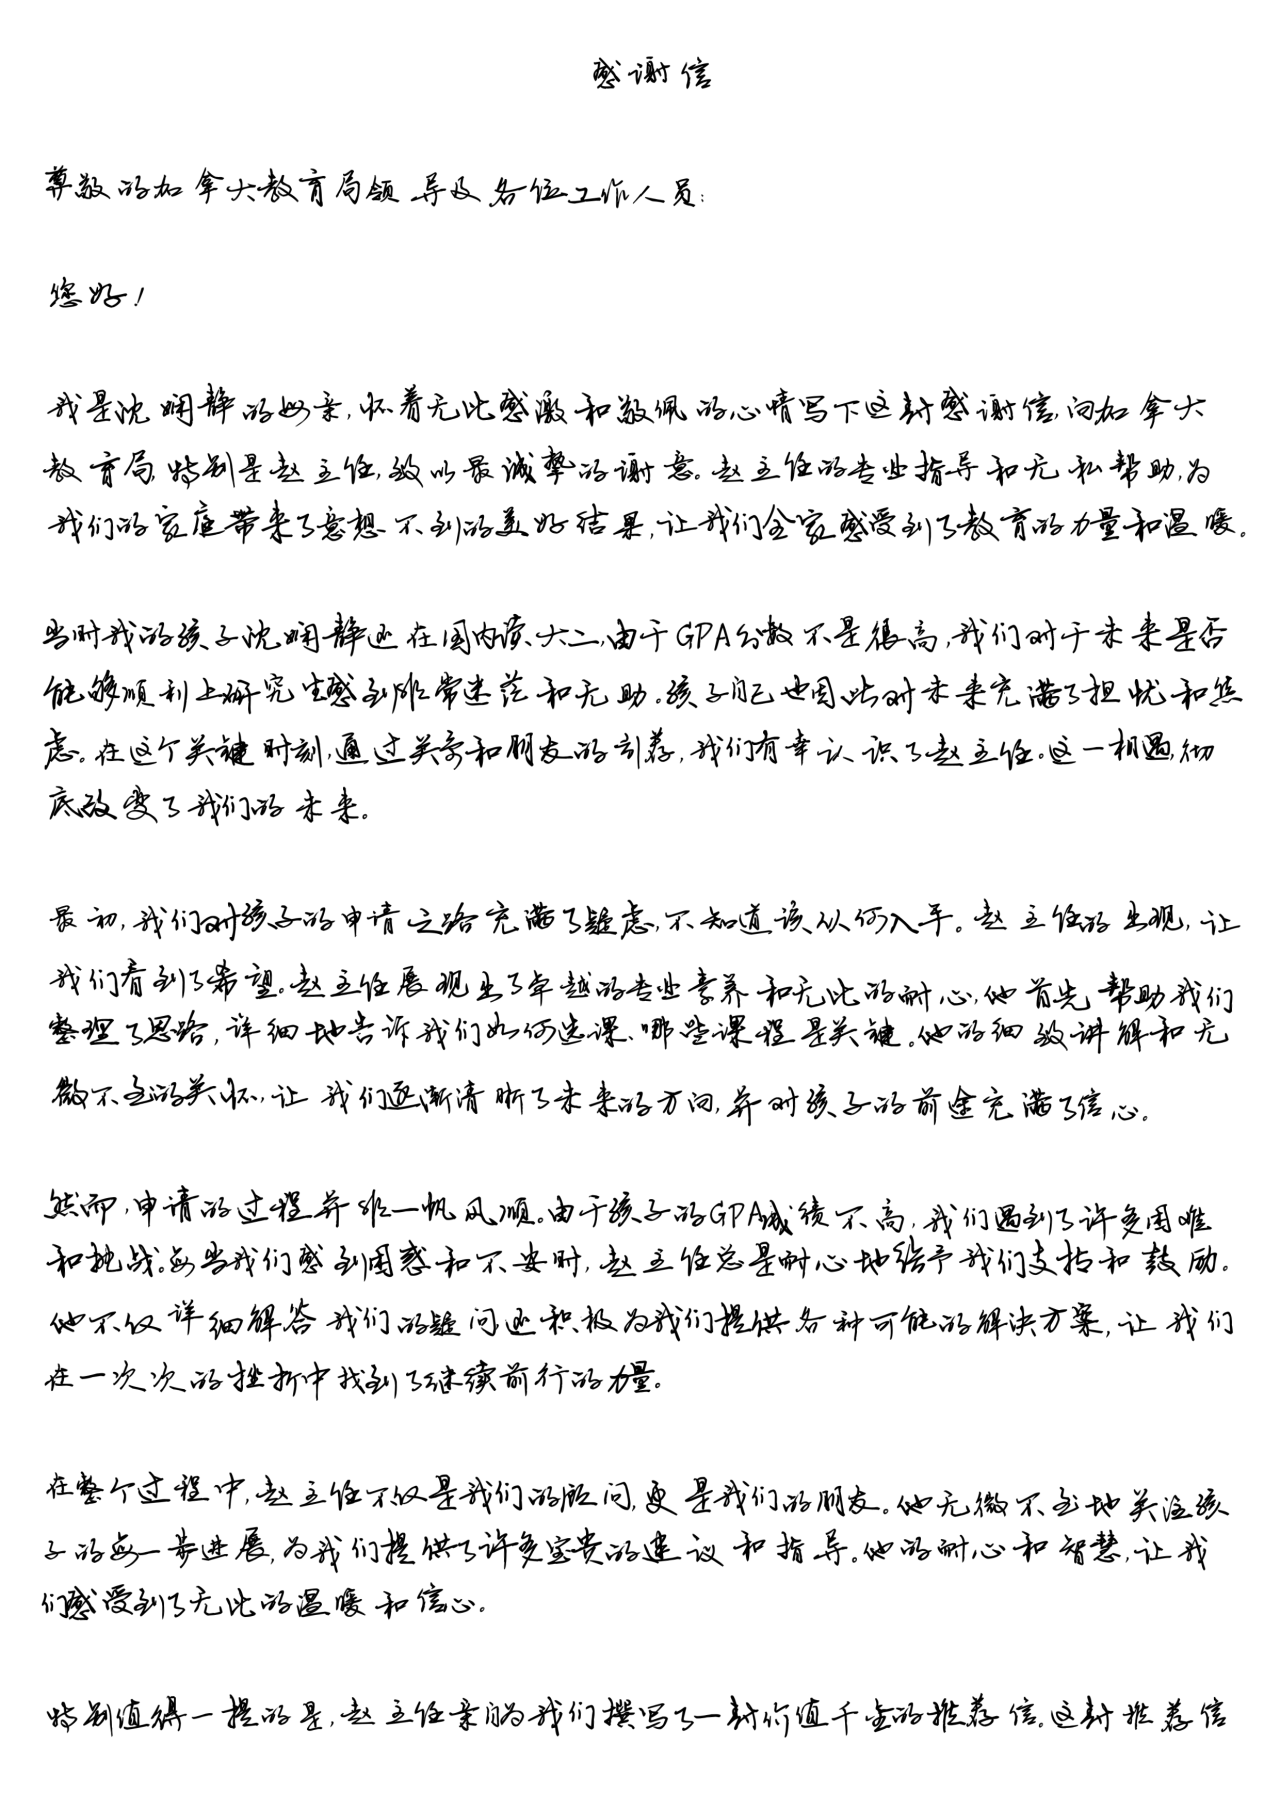 感谢信
尊敬的加拿大教育局领导及各位工作人员:
您好!
我是沈娴静的母亲,怀着无比感激和敬佩的心情写下这封感谢信,向加拿大
教育局,特别是赵主任,致以最诚挚的谢意。赵主任的专业指导和无私帮助,为
我们的家庭带来了意想不到的美好结果,让我们全家感受到了教育的力量和温暖。
当时我的孩子沈娴静还在国内读大二,由于GPA分数不是很高,我们对于未来是否
能够顺利上研究生感到非常迷茫和无助。孩子自己也因此对未来充满了担忧和焦
虑。在这个关键时刻,通过关系和朋友的引荐,我们有幸认识了赵主任。这一相遇,彻
底改变了我们的未来。
最初,我们对孩子的申请之路充满了疑虑,不知道该从何入手。赵主任的出现,让
我们看到了希望。赵主任展现出了卓越的专业素养和无比的耐心,他首先帮助我们
整理了思路,详细地告诉我们如何选课、哪些课程是关键。他的细致讲解和无
微不至的关怀,让我们逐渐清晰了未来的方向,并对孩子的前途充满了信心。
然而,申请的过程并非一帆风顺。由于孩子的GPA成绩不高,我们遇到了许多困难
和挑战。每当我们感到困惑和不安时,赵主任总是耐心地给予我们支持和鼓励。
他不仅详细解答我们的疑问还积极为我们提供各种可能的解决方案,让我们
在一次次的挫折中找到了继续前行的力量。
在整个过程中,赵主任不仅是我们的顾问,更是我们的朋友。他无微不至地关注孩
子的每一步进展,为我们提供了许多宝贵的建议和指导。他的耐心和智慧,让我
们感受到了无比的温暖和信心。
特别值得一提的是,赵主任亲自为我们撰写了一封价值千金的推荐信。这封推荐信